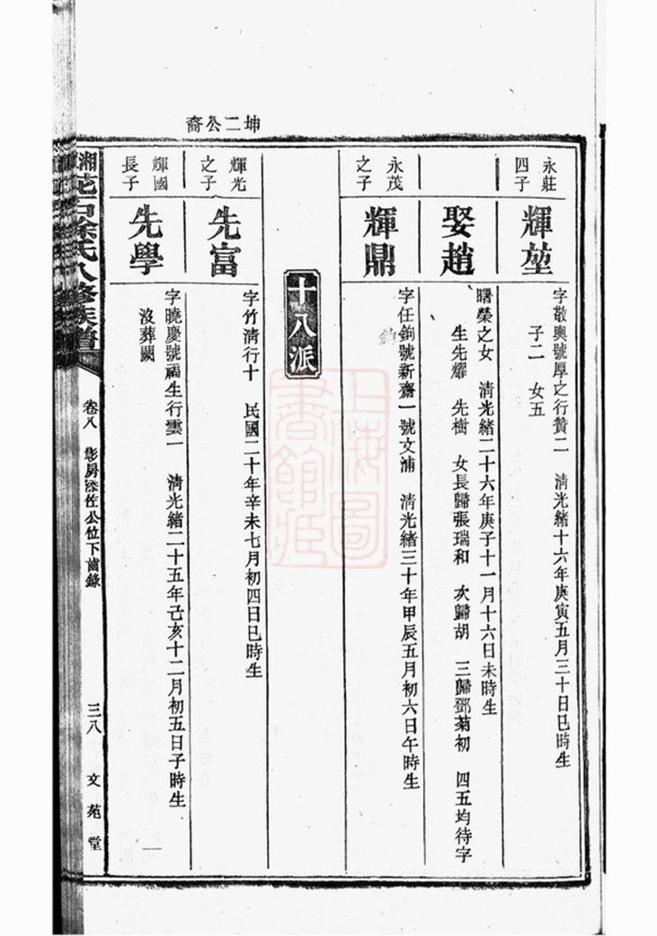 坤二公裔
永莊
四子
輝堃
字敬輿號厚之行贊二 清光緒十六年庚寅五月三十日巳時生
子二 女五
娶趙
曙榮之女 清光緒二十六年庚子十一月十六日未時生
生先耀 先樹 女長歸張瑞和 次歸胡 三歸鄧菊初 四五均待字
永茂
之子
輝鼎
字任鈞號新齋一號文浦 清光緒三十年甲辰五月初六日午時生
十八派
輝光
之子
先富
字竹清行十 民國二十年辛未七月初四日巳時生
輝國
長子
先學
字曉慶號福生行雲一 清光緒二十五年己亥十二月初五日子時生
沒葬國
湘花石徐氏八修族譜
卷八 彰房 公位下齒錄
三八
文苑堂
上海圖
書館藏